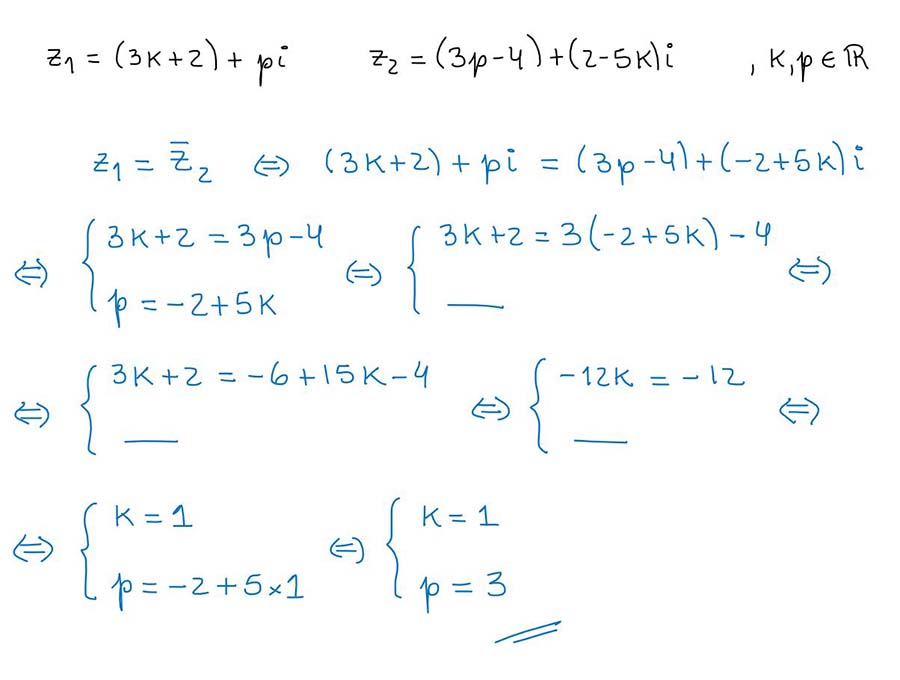 z₁ = (3k+2) + pi    z₂ = (3p-4)+(2-5k)i    , k,p ∈ ℝ
z₁ = z̅₂ ⇔ (3k+2) + pi = (3p-4)+(-2+5k)i
⇔ { 3k+2 = 3p-4 ; p = -2+5k ⇔ { 3k+2 = 3(-2+5k) - 4 ; —— ⇔
⇔ { 3k+2 = -6+15k-4 ; —— ⇔ { -12k = -12 ; —— ⇔
⇔ { k = 1 ; p = -2+5×1 ⇔ { k = 1 ; p = 3